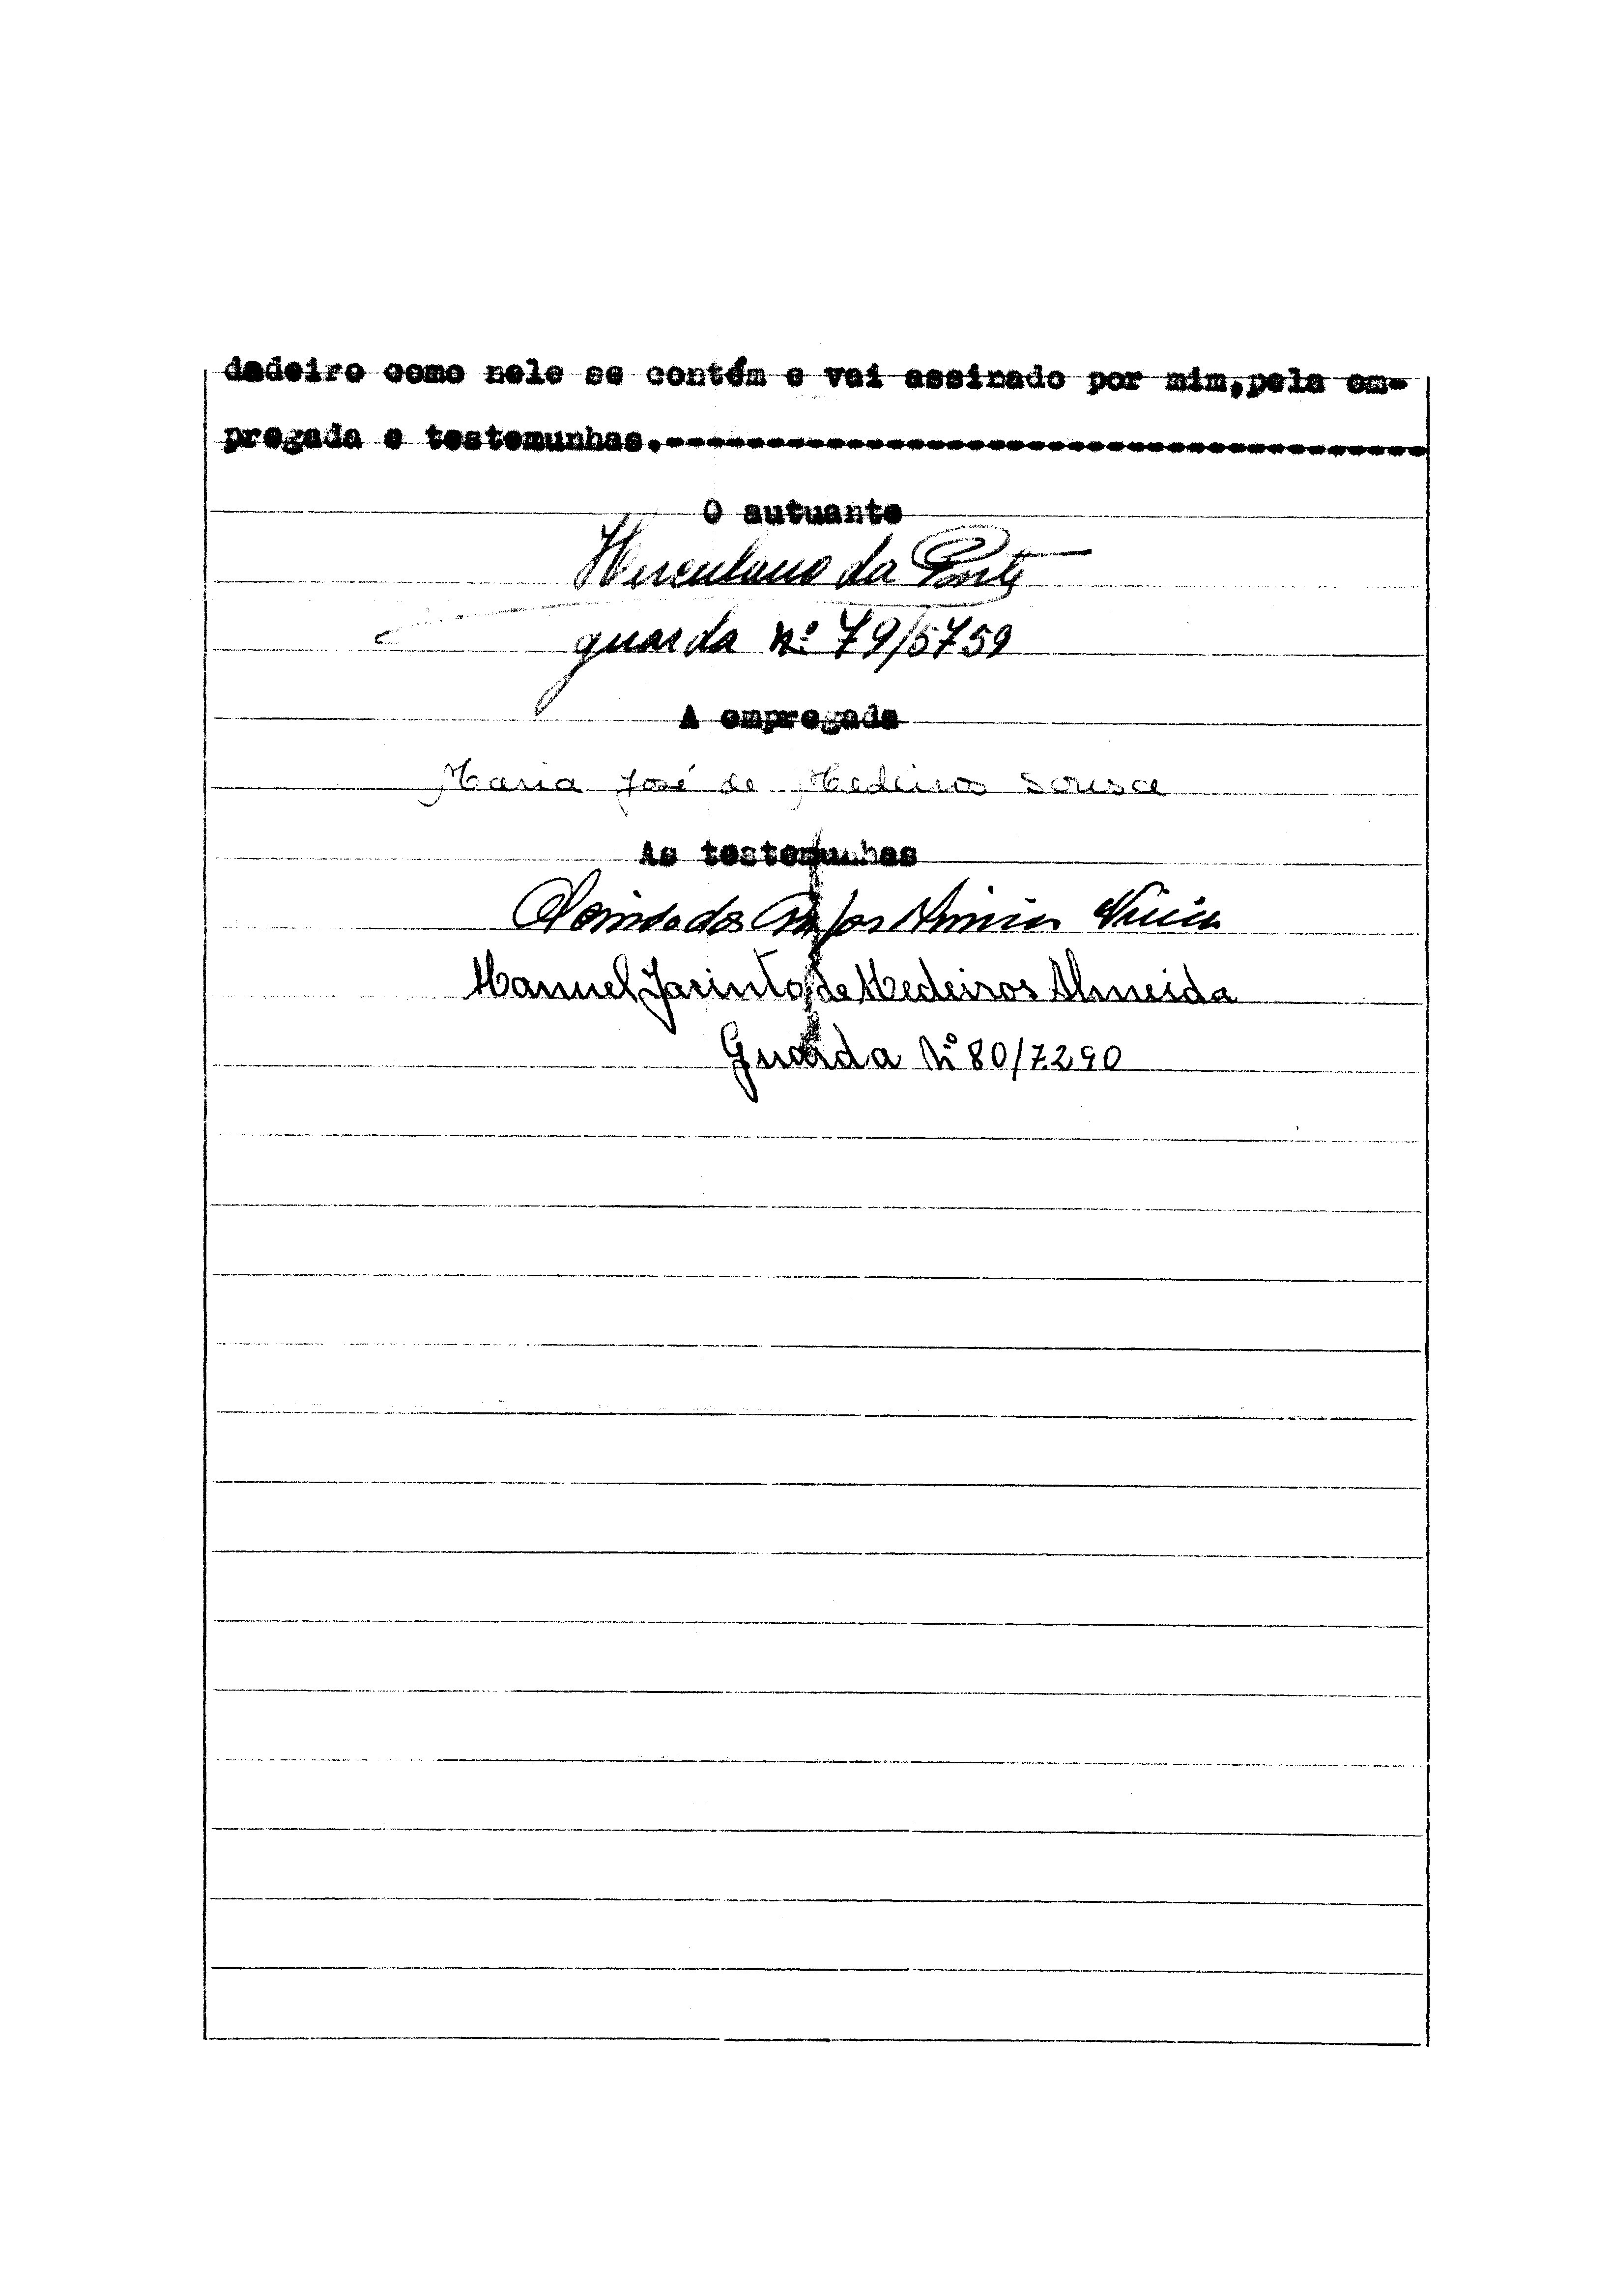 dadeiro como nele se contém e vai assinado por mim,pela em-
pregada e testemunhas.-----------------------------------------
O autuante
Herculano da Ponte
guarda nº 79/5759
A empregada
Maria José de Medeiros Sousa
As testemunhas
Manuel Jacinto de Medeiros Almeida
Guarda Nº 80/7290